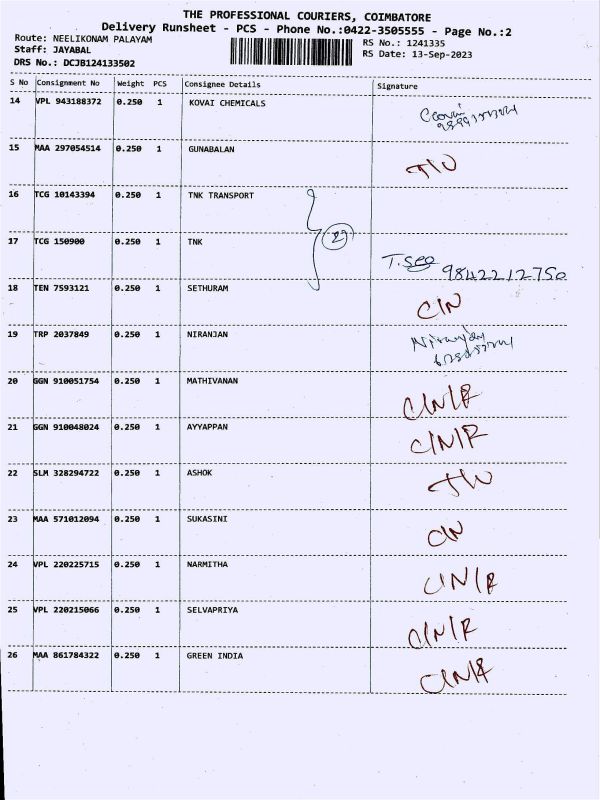 THE PROFESSIONAL COURIERS, COIMBATORE
Delivery Runsheet - PCS - Phone No.:0422-3505555 - Page No.:2
Route: NEELIKONAM PALAYAM
RS No.: 1241335
Staff: JAYABAL
RS Date: 13-Sep-2023
DRS No.: DCJB124133502
S No Consignment No Weight PCS Consignee Details Signature
14 VPL 943188372 0.250 1 KOVAI CHEMICALS
15 MAA 297054514 0.250 1 GUNABALAN
16 TCG 10143394 0.250 1 TNK TRANSPORT
17 TCG 150900 0.250 1 TNK
9842212750
18 TEN 7593121 0.250 1 SETHURAM CIN
19 TRP 2037849 0.250 1 NIRANJAN Niranjan
20 GGN 910051754 0.250 1 MATHIVANAN C/N/R
21 GGN 910048024 0.250 1 AYYAPPAN C/N/R
22 SLM 328294722 0.250 1 ASHOK
23 MAA 571012094 0.250 1 SUKASINI CIN
24 VPL 220225715 0.250 1 NARMITHA C/N/R
25 VPL 220215066 0.250 1 SELVAPRIYA C/N/R
26 MAA 861784322 0.250 1 GREEN INDIA C/N/R